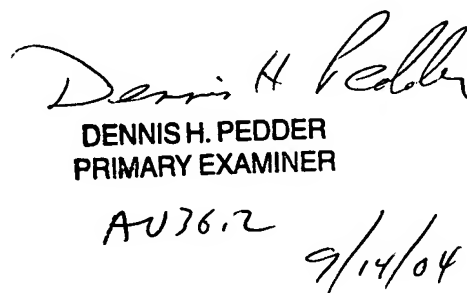 Dennis H Pedder
DENNIS H. PEDDER
PRIMARY EXAMINER
AU3612
9/14/04